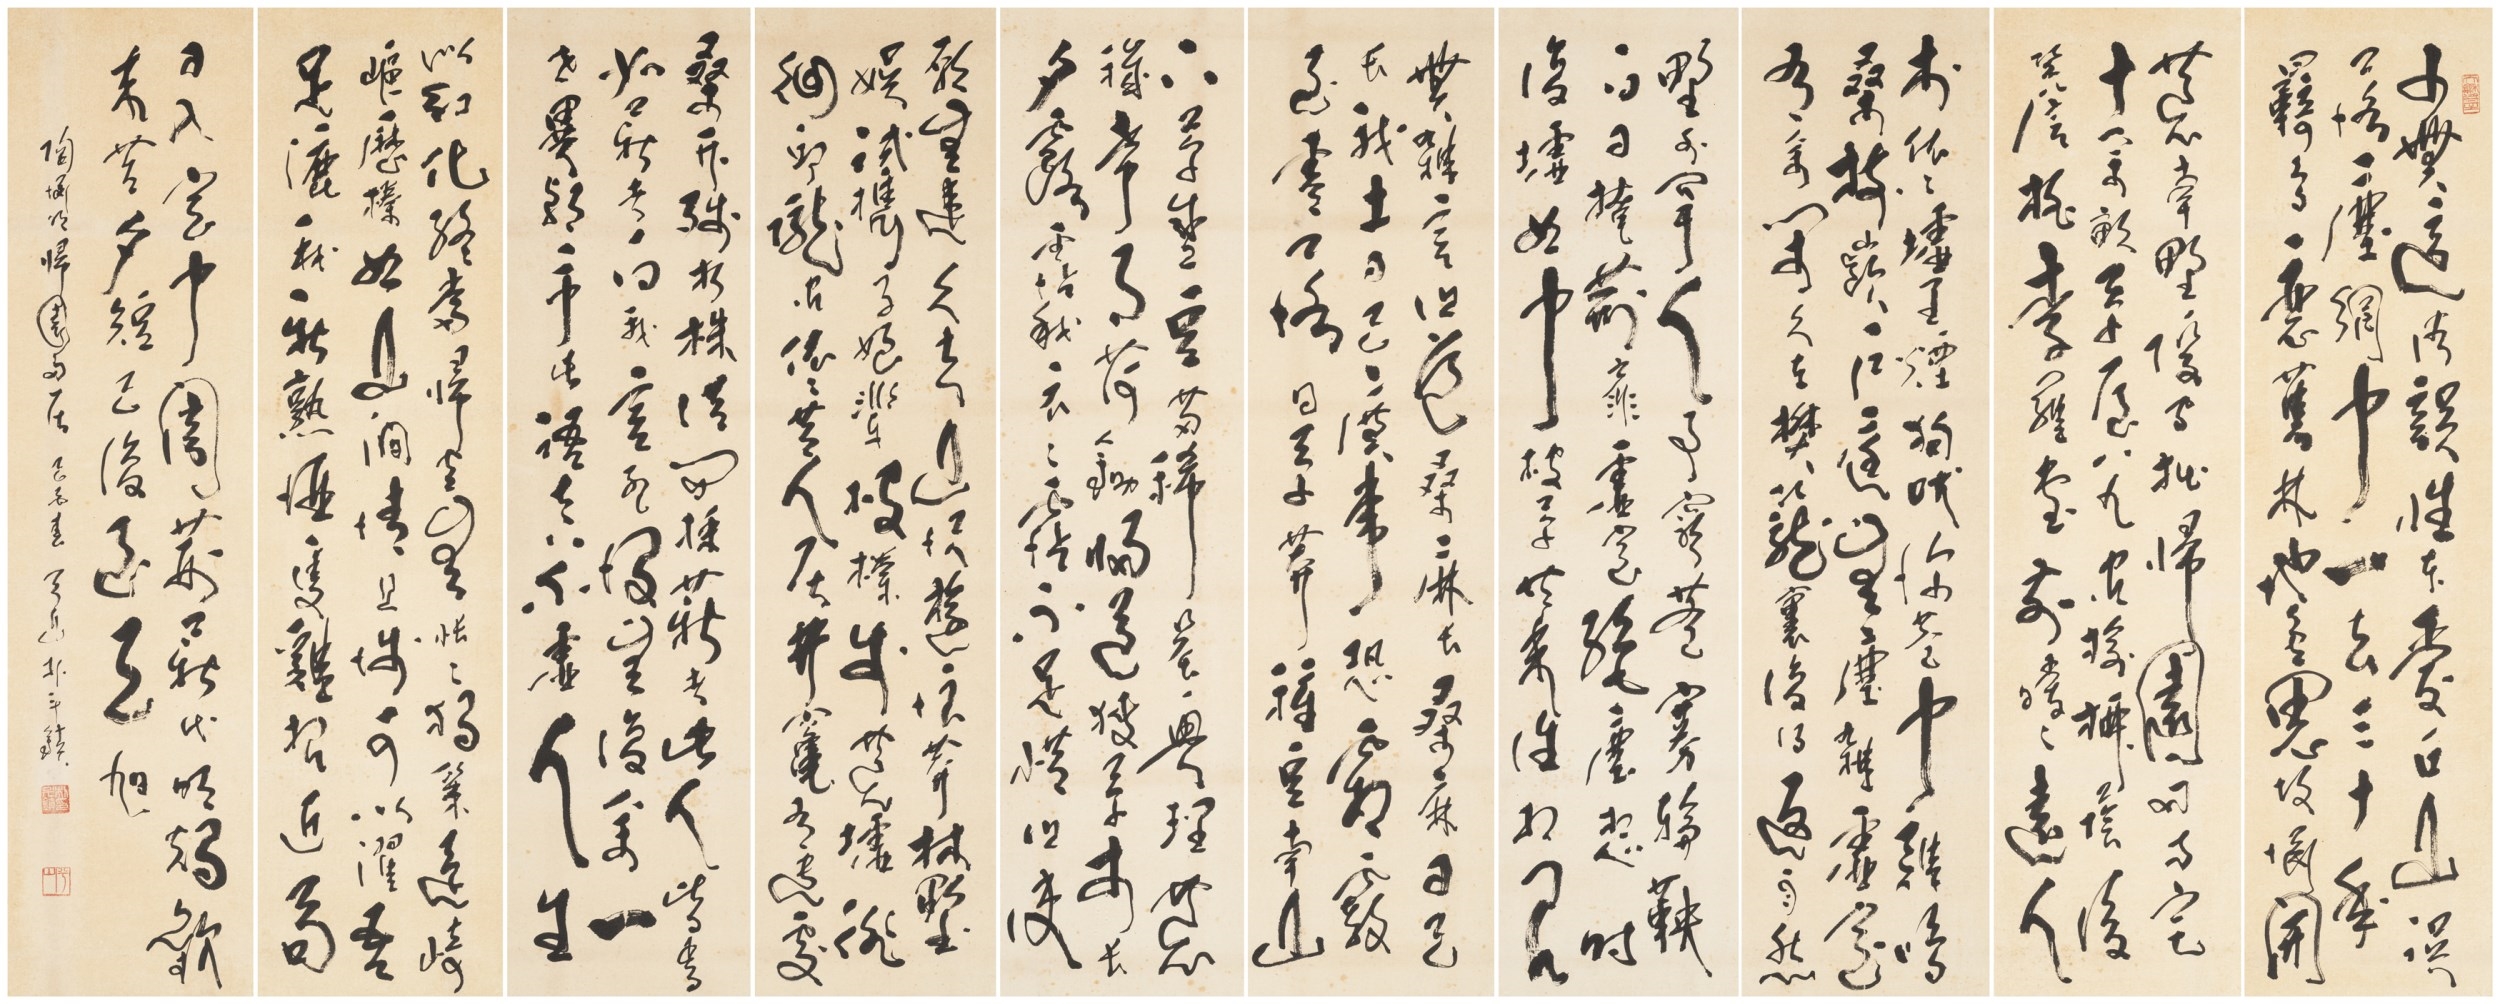 少無適俗韻性本愛丘山誤
落塵網中一去三十年
羈鳥戀舊林池魚思故淵開
荒南野際守拙歸園田方宅
十餘畝草屋八九間榆柳蔭後
簷桃李羅堂前曖々遠人
村依々墟里煙狗吠深巷中雞鳴
桑樹巔戶庭無塵雜虛室
有餘閒久在樊籠裏復得返自然
野外罕人事窮巷寡輪鞅
白日掩荊扉虛室絕塵想時
復墟曲中披草共來往相見
無雜言但道桑麻長桑麻日已
長我土日已廣常恐霜霰
至零落同草莽種豆南山
下草盛豆苗稀晨興理荒
穢帶月荷鋤歸道狹草木長
夕露霑我衣々霑不足惜但使
願無違久去山澤遊浪莽林野
娛試攜子姪輩披榛步荒墟徘
徊丘隴間依々昔人居井竈有遺處
桑竹殘朽株借問採薪者此人皆焉
如薪者向我言死沒無復餘一
世異朝市此語真不虛人生
似幻化終當歸空無悵々獨策還崎
嶇歷榛曲山澗清且淺可以濯吾
足漉我新熟酒隻雞招近局
日入室中闇荊薪代明燭歡
來苦夕短已復至天旭
陶淵明歸園田居 己亥春